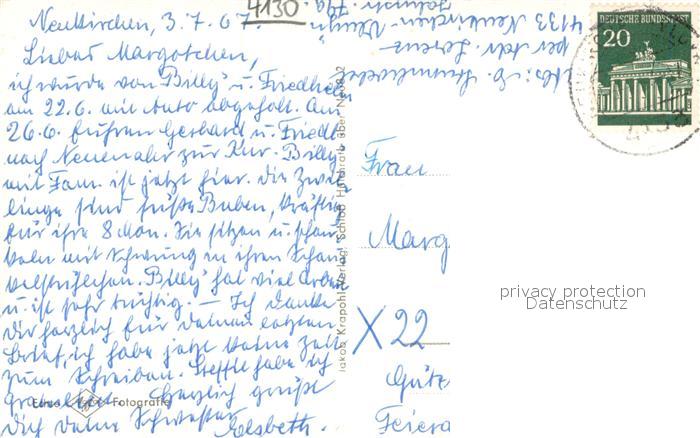 4130
Neukirchen, 3.7.67.
Liebes Margotchen,
ich wurde von Billy u. Friedhelm
am 22.6. mit Auto abgeholt. Am
26.6. fuhren Gerhard u. Friedh.
nach Neuenahr zur Kur. Billy
mit Fam. ist jetzt hier. Die Zwil-
linge sind süße Buben, kräftig
für ihre 8 Mon. Sie sitzen u. schau-
keln mit Schwung in ihren Schau-
kelstühlchen. Billy hat viel Arbeit
u. ist sehr tüchtig. – Ich danke
Dir herzlich für Deinen letzten
Brief, ich habe jetzt keine Zeit
zum Schreiben. habe ich
Herzlich grüßt
Dich Deine Schwester
Elsbeth.
Abs.: E.
per Adr.
4133 Neukirchen-Vluyn
DEUTSCHE BUNDESPOST
20
Frau
Marg
X 22
Gütz
Feiera
Jakob Krapohl-Verlag, Schloß Hülchrath über Neuss 2
Echte Fotografie
privacy protection
Datenschutz